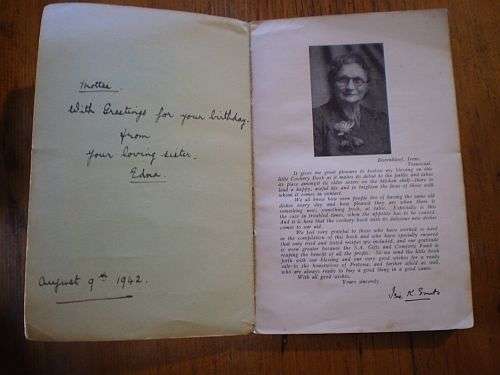 With Greetings for your birthday.
from
your loving sister.
Edna.
August 9th 1942.
Doornkloof, Irene,
Transvaal.
It gives me great pleasure to bestow my blessing on the
little Cookery Book as it makes its debut to the public and takes
its place amongst its older sisters on the kitchen shelf, there to
lead a happy, useful life and to brighten the lives of those with
whom it comes in contact.
We all know how soon people tire of having the same old
dishes every day and how pleased they are when there is
something new, something fresh, at table. Especially is this
the case in troubled times, when the appetite has to be coaxed.
And it is here that the cookery book with its delicious new dishes
comes to our aid.
We feel very grateful to those who have worked so hard
at the compilation of this book and who have specially ensured
that only tried and tested recipes are included, and our gratitude
is even greater because the S.A. Gifts and Comforts Fund is
reaping the benefit of all the profits. So we send the little book
forth with our blessing and our very good wishes for a ready
sale to the housewives of Pretoria and further afield as well,
who are always ready to buy a good thing in a good cause.
With all good wishes,
Yours sincerely,
Isie K. Smuts